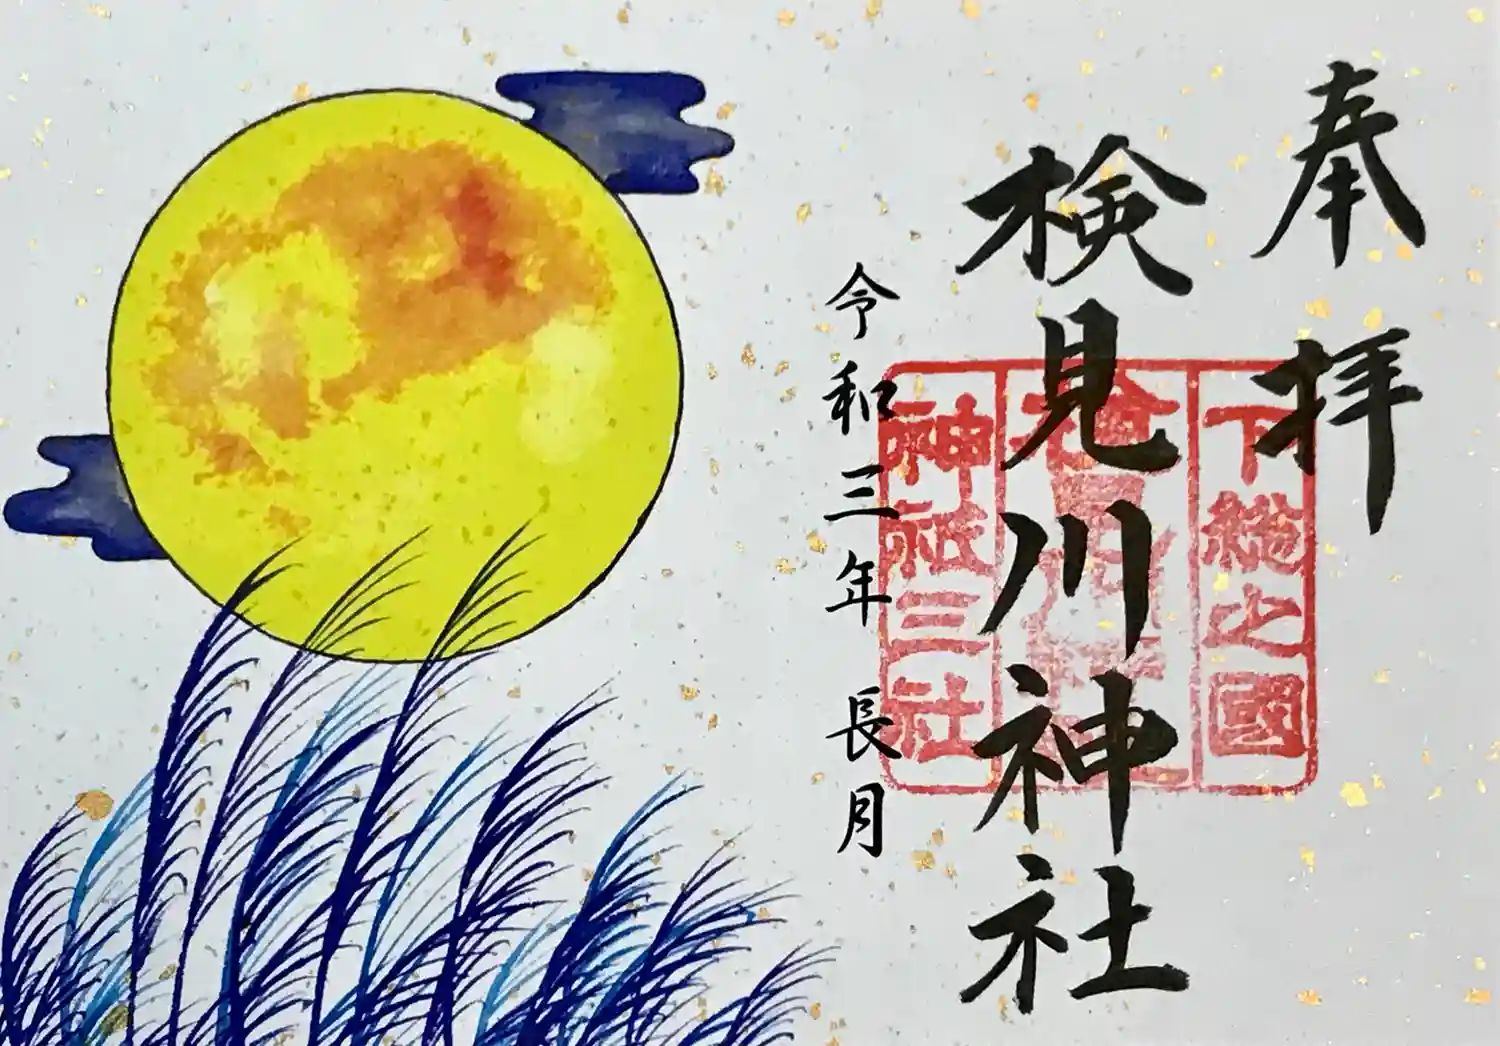 奉拝
下総之國
検見川神社
神祇三社
令和三年 長月